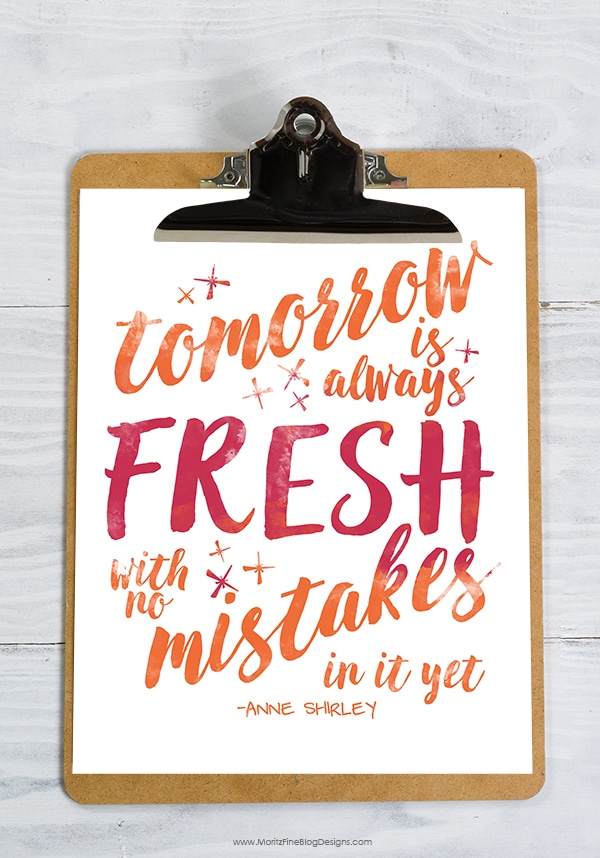 tomorrow
is
always
FRESH
with
no
mistakes
in it yet
-ANNE SHIRLEY
www.MoritzFineBlogDesigns.com